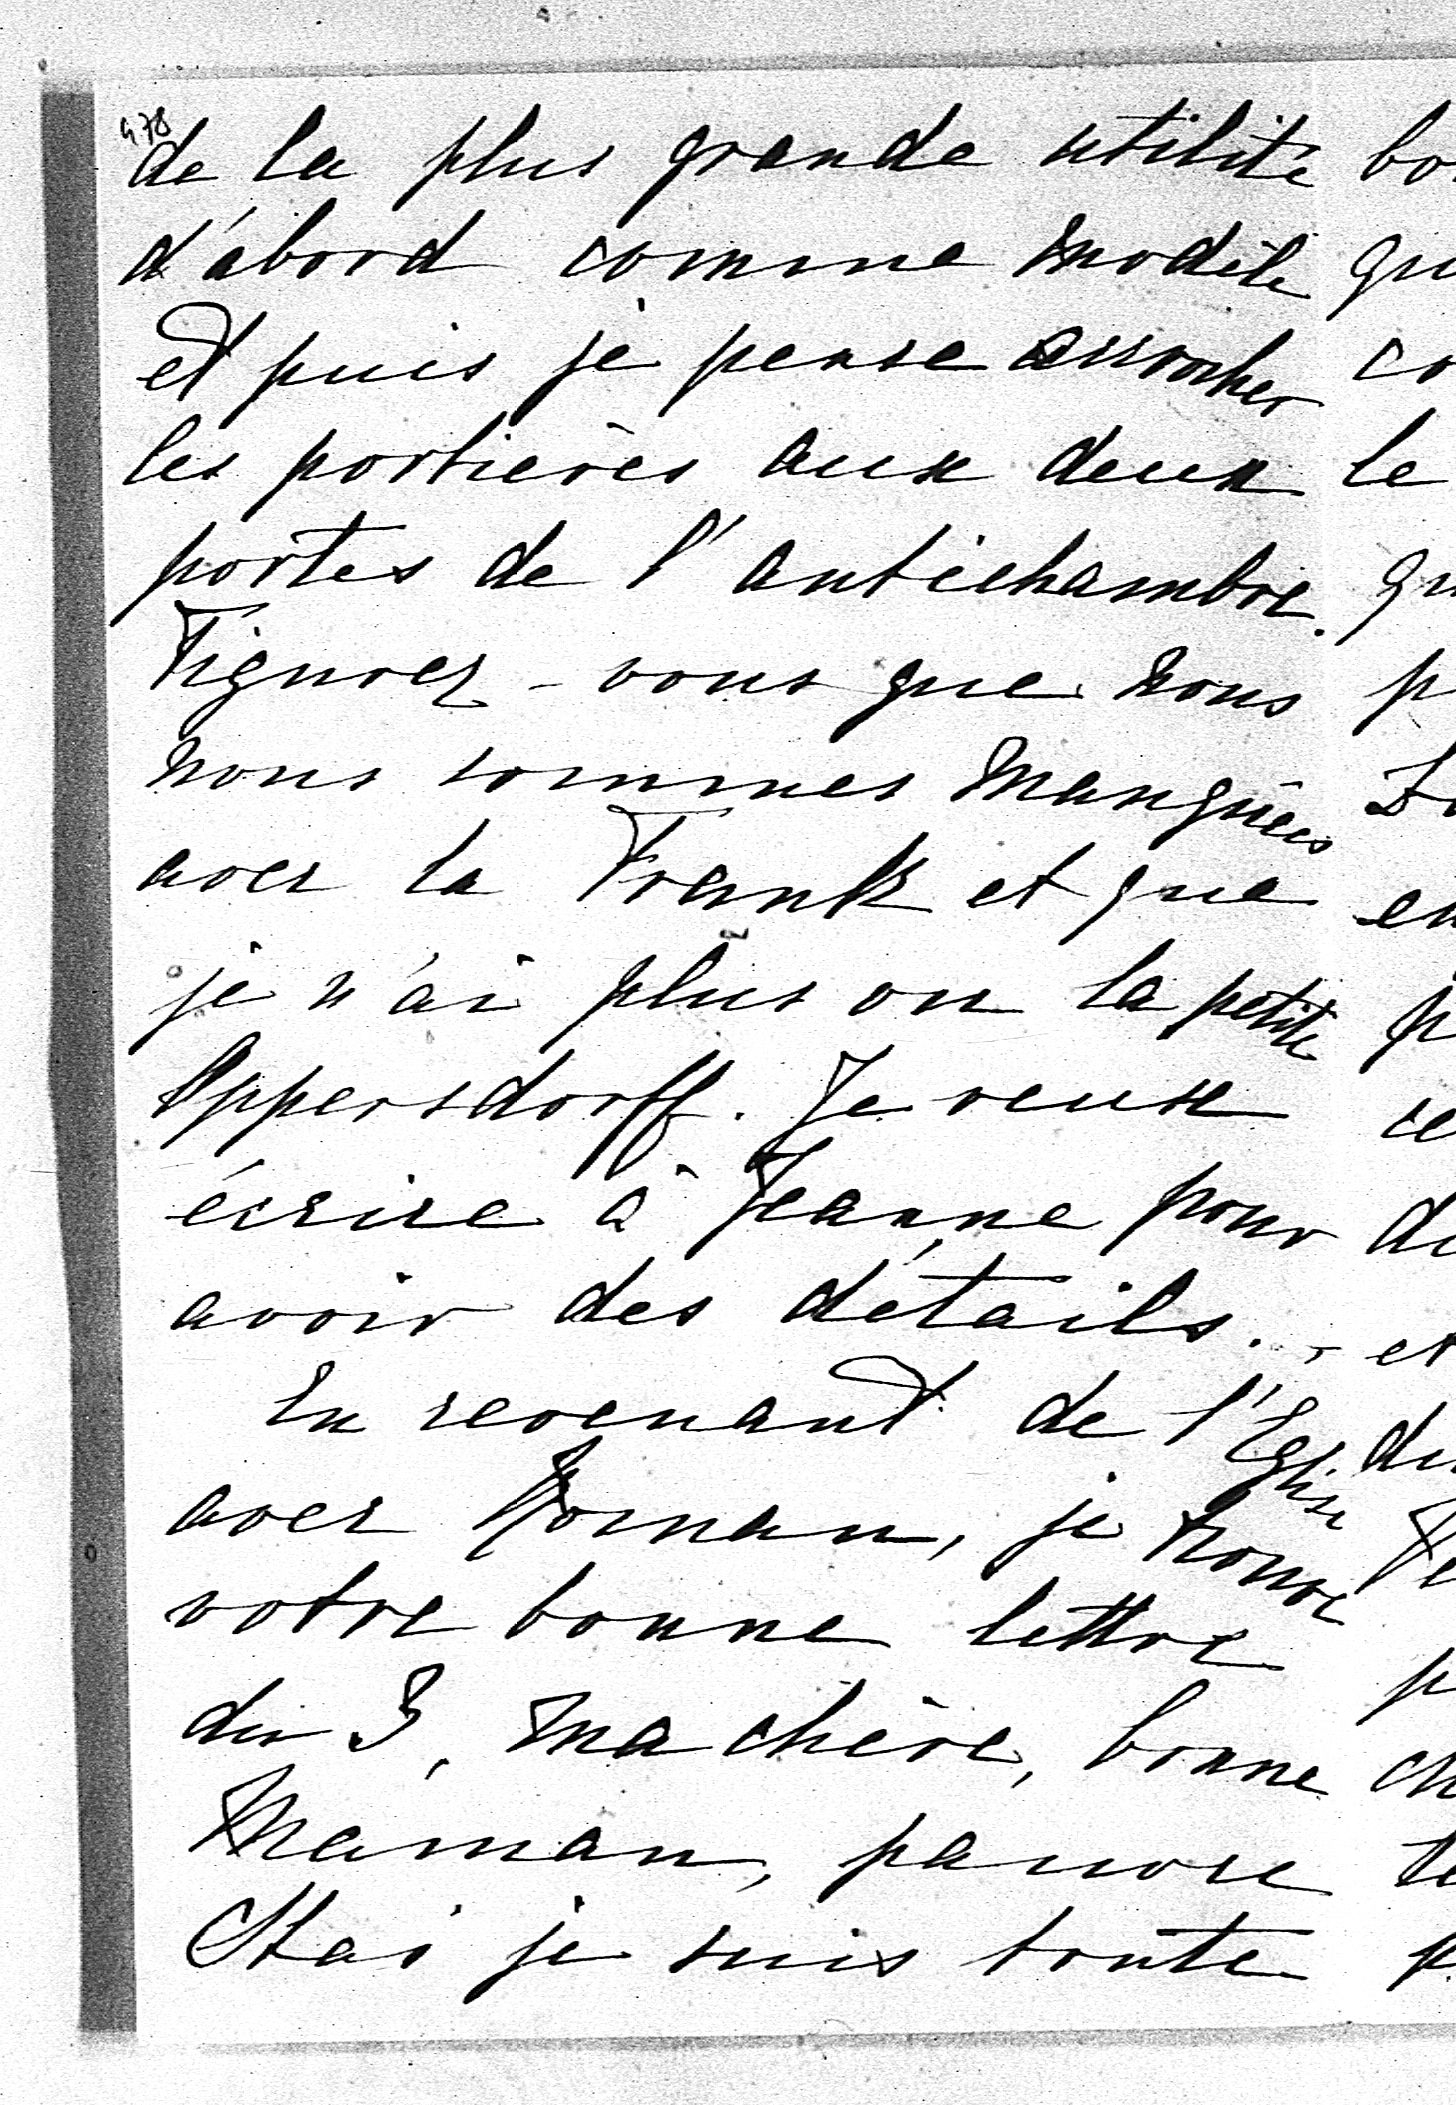 478
de la plus grande utilité
d'abord comme modèle
et puis je pense accrocher
les portières aux deux
portes de l'antichambre.
Figurez-vous que nous
nous sommes manquées
avec la Frank et que
je n'ai plus vu la petite
Oppersdorff. Je veux
écrire à Jeanne pour
avoir des détails.
En revenant de l'Eglise
avec Roman, je trouve
votre bonne lettre
du 3, ma chère, bonne
Maman, pauvre
Stas je suis toute